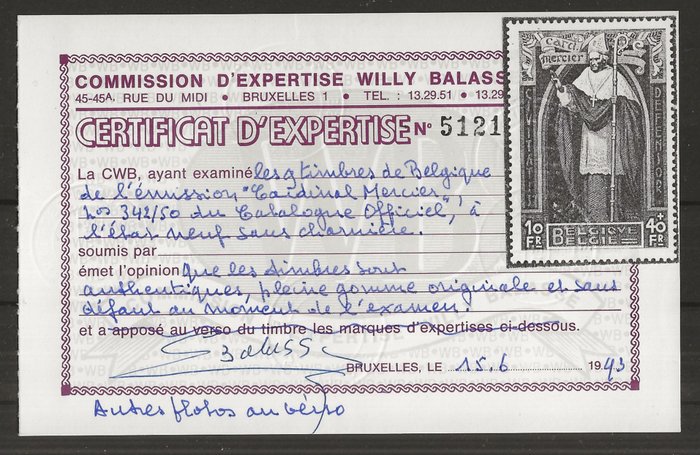 COMMISSION D'EXPERTISE WILLY BALASS
45-45A, RUE DU MIDI • BRUXELLES 1 • TEL. : 13.29.51 • 13.29
CERTIFICAT D'EXPERTISE N° 5121
La CWB, ayant examiné les 9 timbres de Belgique
de l'émission "Cardinal Mercier",
nos 342/50 du Catalogue Officiel, à
l'état neuf sans charnière.
soumis par
émet l'opinion que les timbres sont
authentiques, pleine gomme originale et sans
défaut au moment de l'examen.
et a apposé au verso du timbre les marques d'expertises ci-dessous.
Balasse
BRUXELLES, LE 15.6 1943
Autres photos au verso
card.
mercier
INVITAT
DEFENSOR
10
FR
BELGIQVE
BELGIE
40
FR